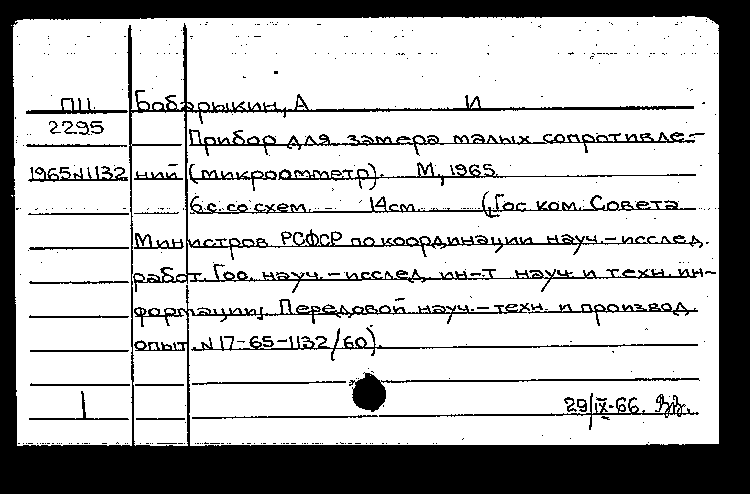 ПП Бабарыкин, А И
2295
Прибор для замера малых сопротивле-
1965 N 1132 ний (микроомметр). М, 1965
6 с. со схем. 14 см. (Гос ком. Совета
Министров РСФСР по координации науч.-исслед.
работ. Гос. науч.-исслед. ин-т науч и техн. ин-
формации. Передовой науч.-техн. и производ.
опыт. N 17-65-1132/60).
1
29/IX-66.